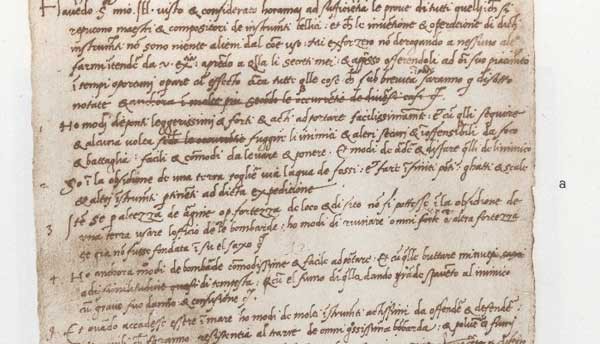 Havendo S mio Ill. visto & considerato horamai ad sufficientia le prove di tutti quelli che si
reputono maestri & compositori de instrumti bellici: et che le inventione & operatione di dicti
instrumti no sono niente alieni dal coe uso: mi exforzero no derogando a nessuno altro
farmi intender da v. ex: aprendo a qlla li secreti mei: & apresso offerendoli ad oni suo piacimento
i tempi oportuni operare cu effecto circa tutte qlle cose che sub brevita saranno q disotto
notate & anchora i molte piu secodo le occurretie de diversi casi
1 Ho modi de ponti leggerissimi & forti & acti ad portare facilissimamte: et cu qlli seguire
& alcuna volta secodo le occurretie fuggire li inimici & altri securi & inoffensibili da foco
& battaglia: facili & comodi da levare & ponere. Et modi de arder & disfare qlli de linimico
2 So i la obsidione de una terra toglier via laqua de fossi: et fare ifiniti ponti ghatti & scale
& altri instrumti ptinenti ad dicta expeditione
3 Ite se p altezza de argine o p fortezza de loco & di sito no si potesse i la obsidione de
una terra usare lofficio de le bombarde: ho modi di ruinare omni forte o altra fortezza
se gia no fusse fondata i su el saxo
4 Ho anchora modi de bombarde comodissime & facile ad portare: Et cu qlle buttare minuti saxi
adi similitudine quasi di tempesta: & cu el fumo di qlla dando grade spaveto al inimico
cu grave suo danno & cofusione
9 Et quado accadesse essere i mare ho modi de molti istrumti actissimi da offender & defender:
resistentia al trarre de omni grossissima bombarda: & polver & fumi
a